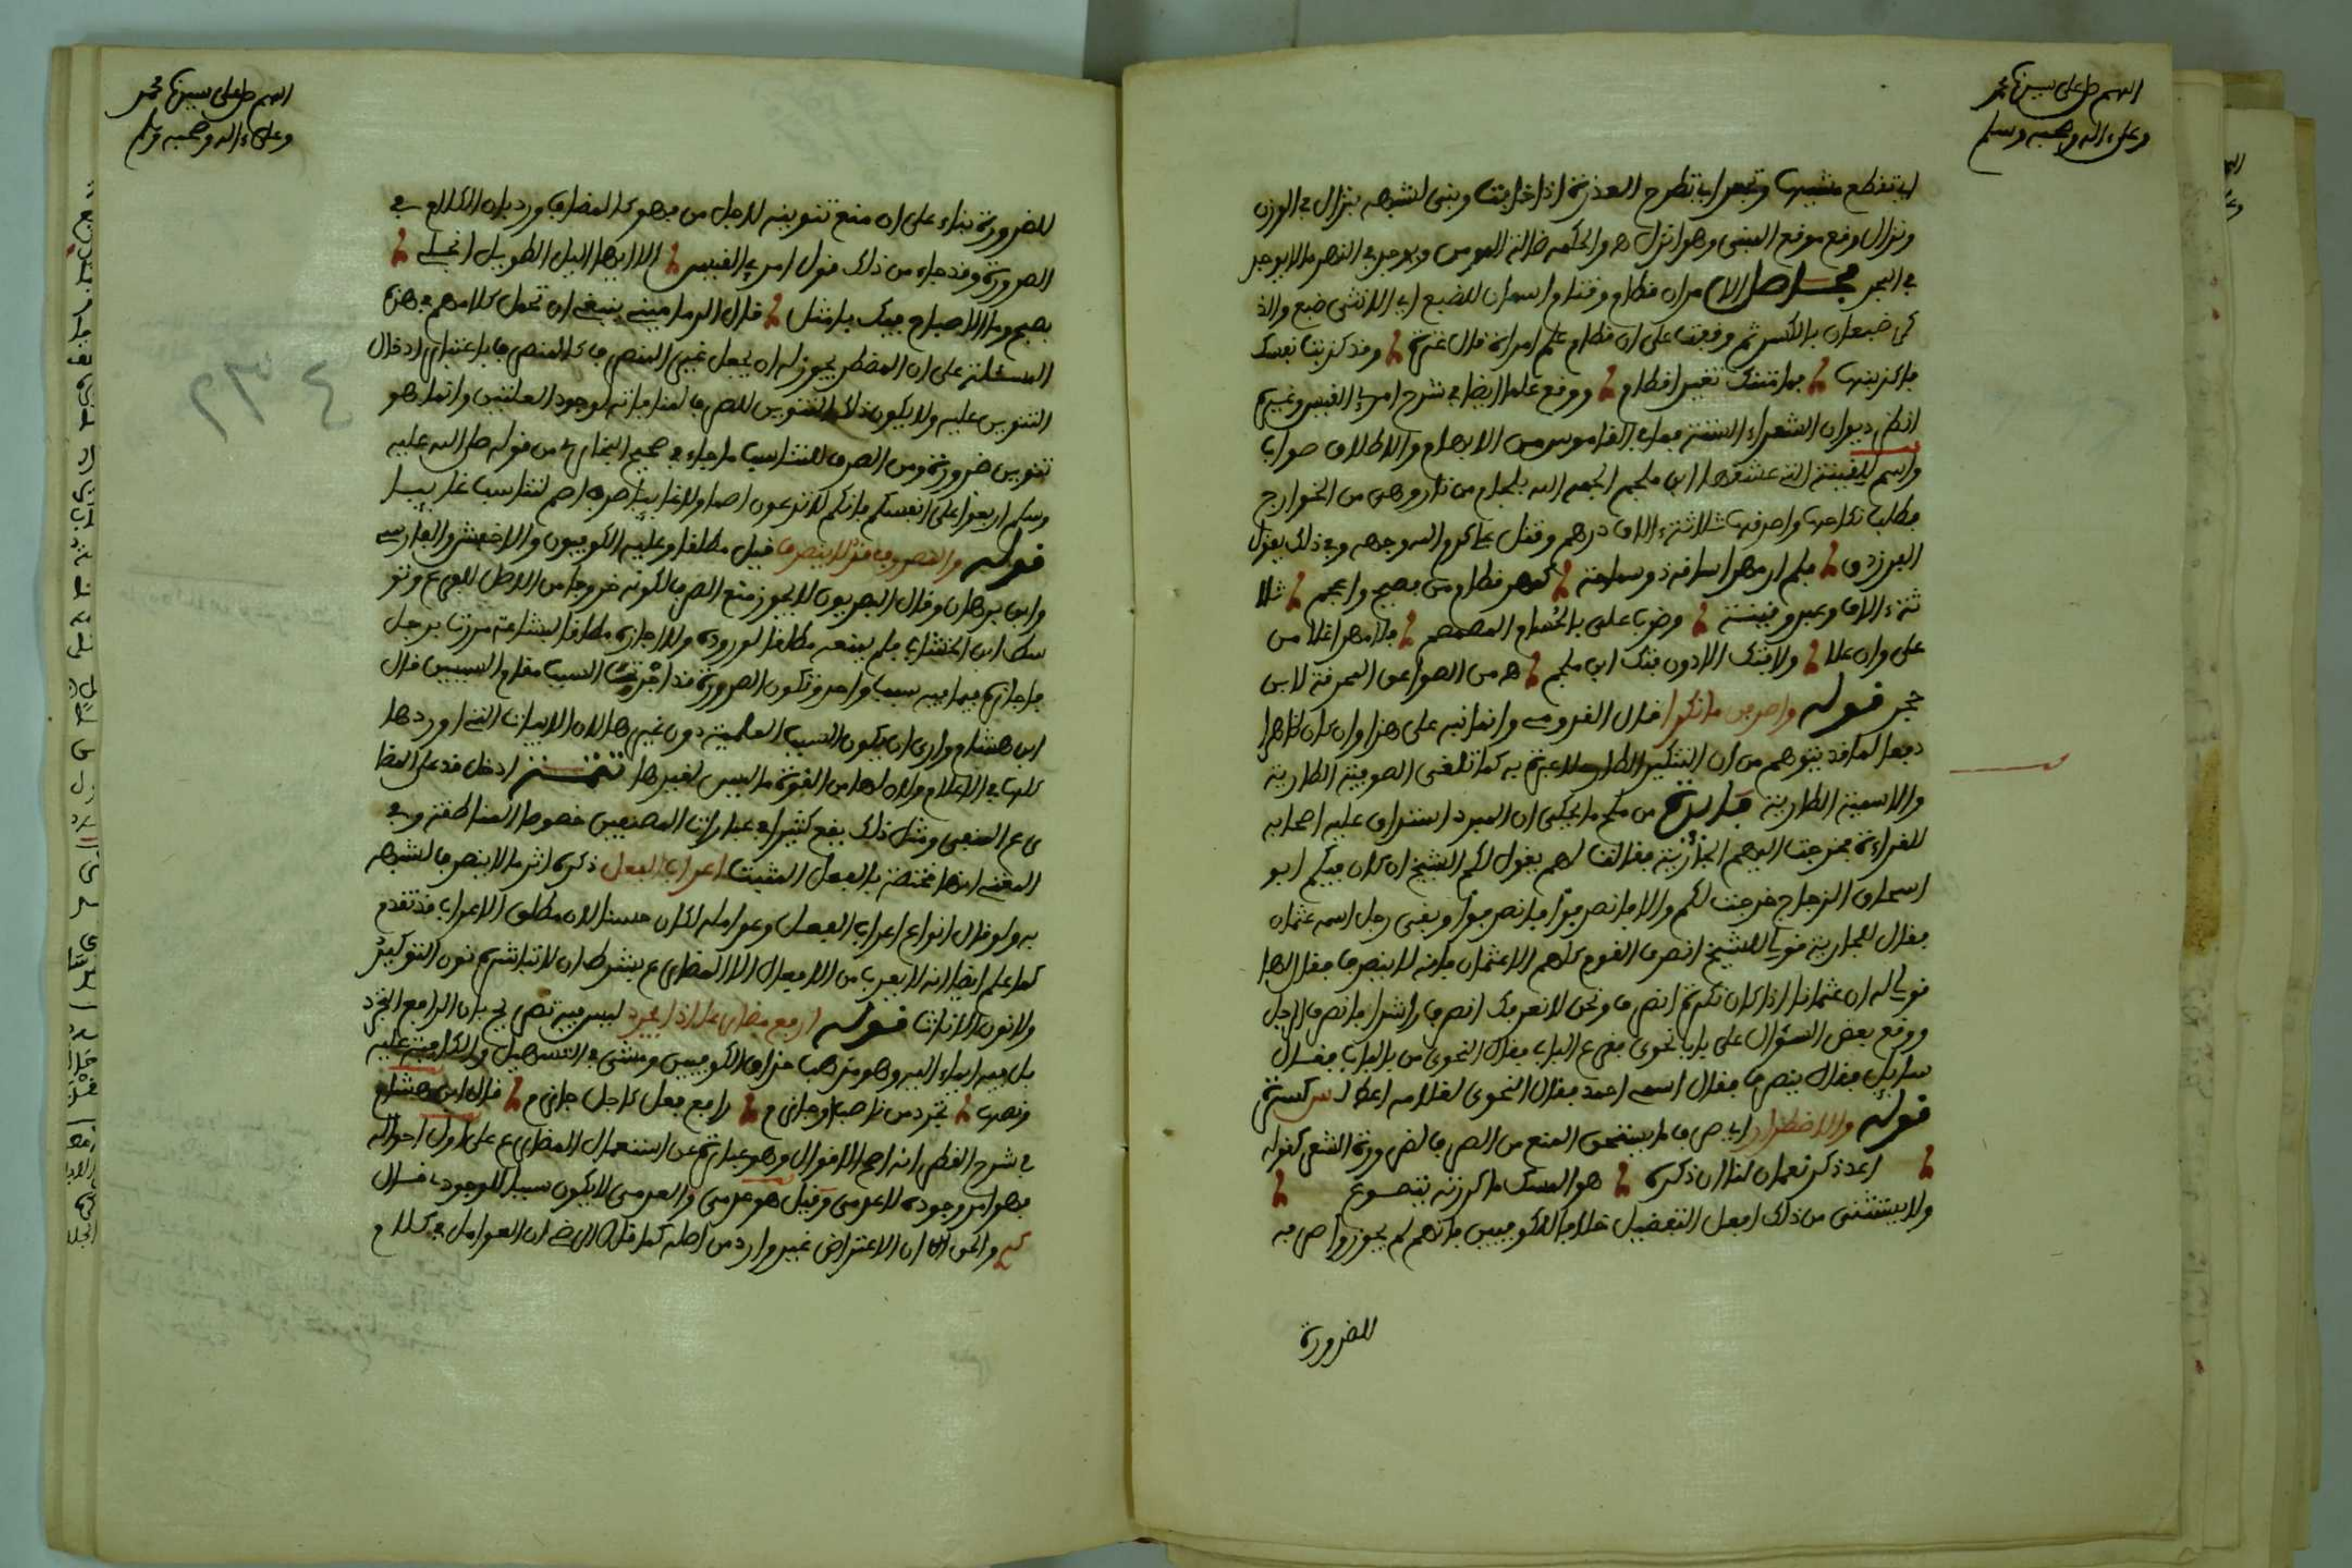 اللهم صل على سيدنا محمد
وعلى ءاله وصحبه وسلم
اي تقطع مشيها وتجعر اي تطرح العذرة اذا خريت وبنى لشبهه بنزال في الوزن
ونزال وقع موقع المبنى وهو انزل ه والحكمه ضالة المومن ويوجد في النهر ما لا يوجد
في البحر الامر ان قطام وقثام اسمان للضبع اي الانثى ضبع والذ
كر ضبعان بالكسر ثم وقعت على ان قطام علم امراة قال عنترة وقد كذبتك نفسك
فاكذبنها لما منتك تغريرا قطام ووقع علما ايضا في شرح امرئ القيس وغيره
انظر ديوان الشعراء الستة فما في القاموس من الابهام والاطلاق صواب
واسم للقينة التي عشقها ابن ملجم الجمه الله بلجام من نار وهي من الخوارج
فطلب نكاحها واصدقها ثلاثة ءالاف درهم وقتل علي كرم الله وجهه وفي ذلك يقول
الفرزدق فلم ار مهرا ساقه ذو سماحة كمهر قطام من فصيح واعجم ثلا
ثة ءالاف وعبد وقينة وضرب علي بالحسام المصمم فلا مهر اغلا من
علي وان غلا ولا فتك الا دون فتك ابن ملجم ه من الصواعق المحرقة لابن
حجر قوله واصرفن ما نكرا قال الفرومي وانما نبه على هذا وان كان ظاهرا
دفعا لما قد يتوهم من ان التنكير الطارئ لا عبرة به كما تلغى الوصفية الطارية
والاسمية الطارية من ملح ما يحكى ان المبرد استراق عليه اصحابه
للقراءة فخرجت اليهم الجارية فقالت لهم يقول لكم الشيخ ان كان فيكم ابو
اسحاق الزجاج خرجت لكم والا فانصرفوا فانصرفوا وبقى رجل اسمه عثمان
فقال للجارية قولي للشيخ انصرف القوم كلهم الا عثمان فانه لا ينصرف فقال لها
قولي له ان عثمانا اذا كان نكرة انصرف ونحن لا نعرفك انصرف راشدا فانصرف الرجل
ووقع بعض السؤال على باب نحوى فقرع الباب فقال النحوى من بالباب فقال
سايل فقال ينصرف فقال اسمه احمد فقال النحوى لغلامه اعط لس كسرة
قوله والاضطرار اي صرف ما يستحق المنع من الصرف لضرورة الشعر كقوله
اعد ذكر نعمان لنا ان ذكره هو المسك ما كررته يتضوع
ولا يستثنى من ذلك افعل التفضيل خلافا للكوفيين فانهم لم يجوزوا صرفه
للضرورة
اللهم صل على سيدنا محمد
وعلى ءاله وصحبه وسلم
للضرورة بناء على ان منع تنوينه لاجل من فهو كالمضاف ورد بان الكلام في
الضرورة وقد جاء من ذلك قول امرئ القيس الا ايها اليل الطويل انجلي
بصبح وما الاصباح فيك بامثل قال الدماميني ينبغي ان تحمل كلامهم في هذه
المسئلة على ان المضطر يجوز له ان يجعل غير المنصرف كالمنصرف باعتبار ادخال
التنوين عليه ولا يكون ذلك التنوين للصرف لمنافاته لوجود العلتين وانما هو
تنوين ضرورة ومن الصرف للتناسب ما جاء في صحيح البخاري من قوله صلى الله عليه
وسلم اربعوا على انفسكم فانكم لا تدعون اصما ولا غائبا صرف اصم لتناسب غائبا
قوله والمصروف قد لا ينصرف قيل مطلقا وعليه الكوفيون والاخفش والفارسي
وابن برهان وقال البصريون لا يجوز منع الصرف لكونه خروجا من الاصل للفرع وتو
سط ابن الخشاب فلم يمنعه مطلقا لوروده ولا اجازه مطلقا لبشاعة مررت برجل
فاجازه فيما فيه سببا واحد وتكون الضرورة قد اجرت السبب مقام السببين قال
ابن هشام وارى ان يكون السبب العلمية دون غيرها لان الابيات التي اوردها
كلها في الاعلام ولان لها من القوة ما ليس لغيرها تتمة ادخل قد على المضا
رع المنفى ومثل ذلك يقع كثيرا في عبارات المصنفين خصوصا المناطقة وفي
المغني انها مختصة بالفعل المثبت اعراب الفعل ذكره اثر ما لا ينصرف لشبهه
به ولو قال انواع اعراب الفعل وعوامله لكان حسنا لان مطلق الاعراب قد تقدم
كما علم ايضا انه لا يعرب من الافعال الا المضارع بشرط ان لا تباشره نون التوكيد
ولا نون الاناث قوله ارفع مضارعا اذا يجرد ليس فيه تصريح بان الرافع التجرد
بل فيه ايماء اليه وهو مذهب حذاق الكوفيين ومشى في التسهيل والكافية عليه
ونصها تجرد من ناصب او جازم رافع فعل كاجل جازم قال ابن هشام
في شرح القطر انه اصح الاقوال وهو عبارة عن استعمال المضارع على اول احواله
فهو امر وجوده لا عدمى وقيل هو عدمى والعدمى لا يكون سببا للوجود قال
والحق ان الاعتراض غير وارد من اصله كما قال الرضي ان العوامل في كلام